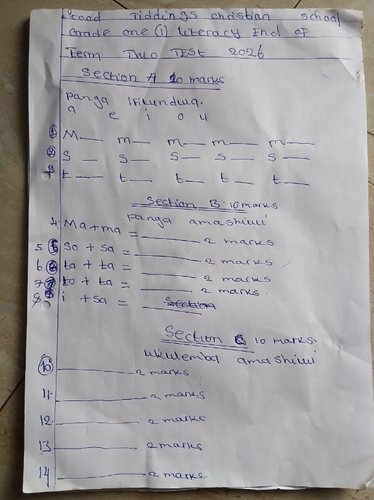 Good Tiddings christian school
Grade one (1) literacy End of
Term Two TEST 2026
Section A 20 marks
panga
a e i o u
M__ m__ m__ m__ m__
S__ s__ s__ s__ s__
t__ t__ t__ t__ t__
Section B: 10 marks
panga amashiwi
4. Ma + ma = ______ 2 marks
5 So + sa = ______ 2 marks
6 ta + ta = ______ 2 marks
7 to + ta = ______ 2 marks.
8 i + sa = ______
Section C 10 marks.
ukulemba amashiwi
10 ______ 2 marks
11. ______ 2 marks
12. ______ 2 marks
13 ______ 2 marks
14 ______ 2 marks